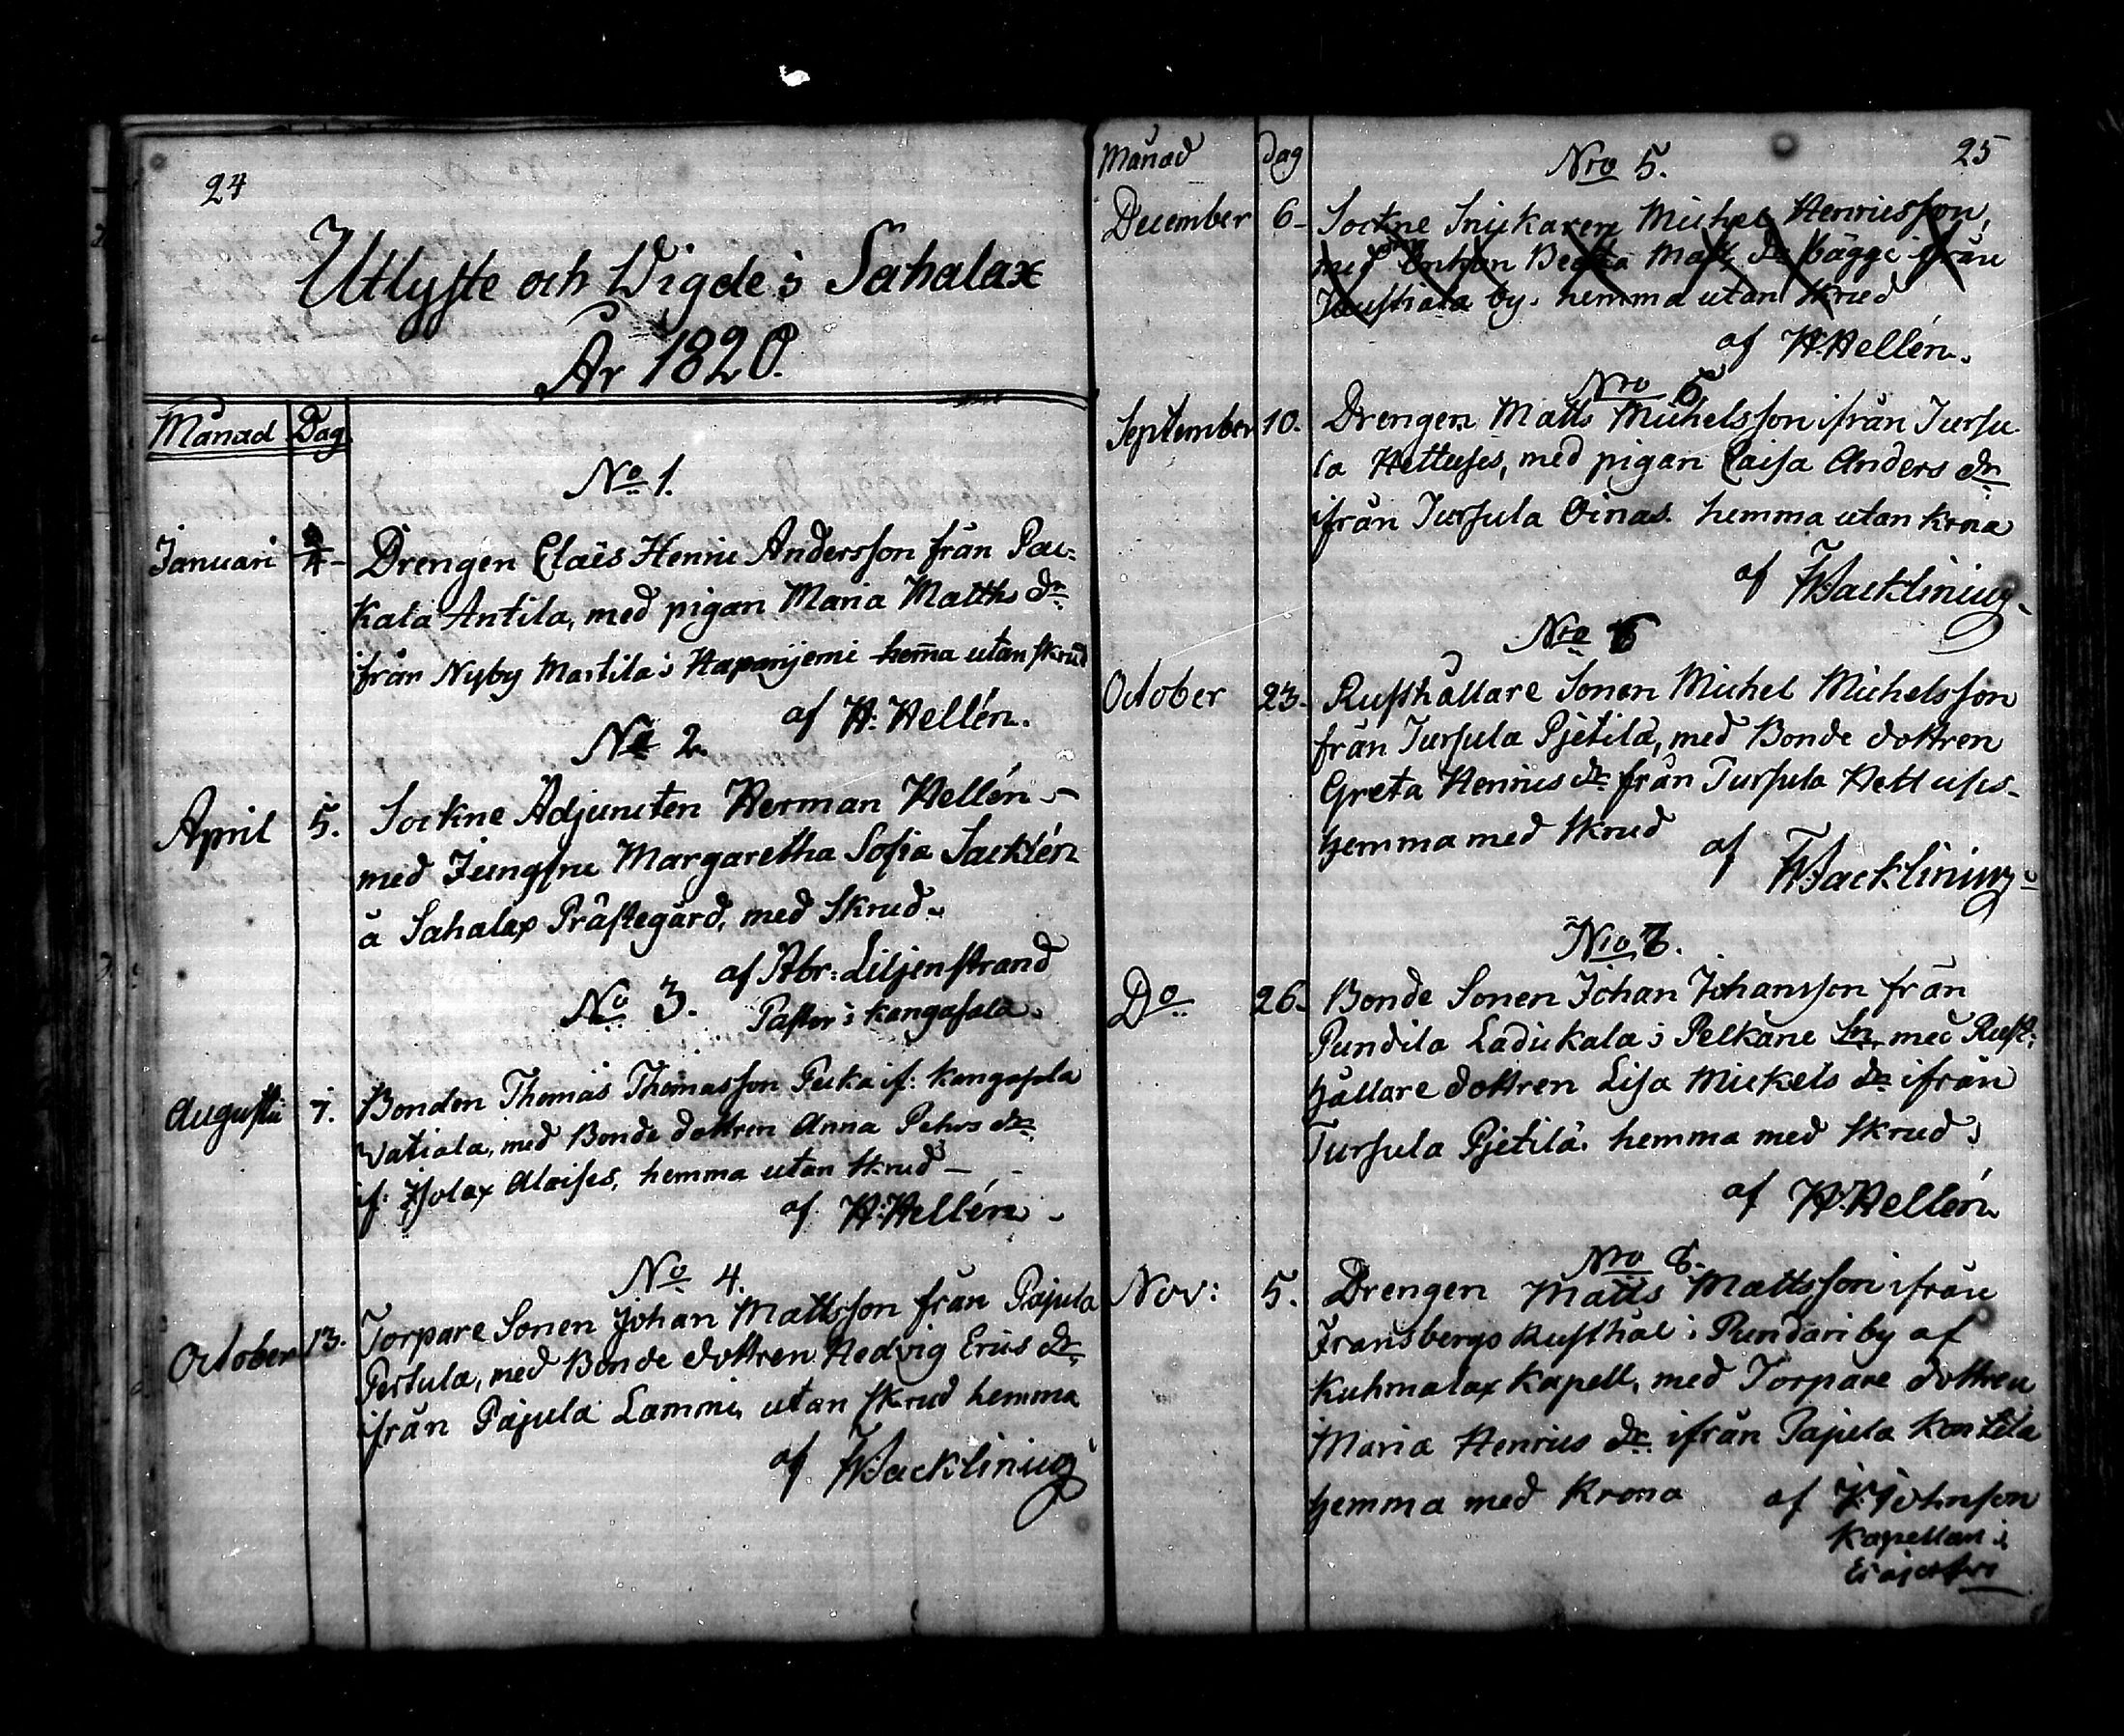 24
Utlyste och Wigde i Sahalax
År 1820.
Månad Dag
No 1.
Januari 4 Drengen Claës Henric Andersson från Pau-
kala Antila, med pigan Maria Matths dr
från Nyby Martila i Haponjemi hemma utan skrud
af H: Hellén.
No 2.
April 5. Sockne Adjuncten Herman Hellén
med Jungfru Margaretha Sofia Jacklén
å Sahalax Prästegård, med Skrud.
af Abr: Liljenstrand
Pastor i Kangasala.
No 3.
Augusti 7. Bonden Thomas Thomasson Peuka if: Kangasala
Vatiala, med Bonde dottren Anna Pehrs dr
if: Isolax Aloises, hemma utan Skrud
af H: Hellén.
No 4.
October 13. Torpare Sonen Johan Mattsson från Pajula
Pertula, med Bonde dottren Hedvig Erics dr
ifrån Pajula Lammi, utan Skrud hemma
af
25
Månad Dag
Nro 5.
December 6. Sockne Snickaren Michel Henricsson,
med Enkan Matts dr bägge ifrån
by. hemma utan Skrud
af H. Hellén.
Nro 5
September 10. Drengen Matts Michelsson ifrån Tursu-
la Hettuses, med pigan Caisa Anders dr
ifrån Tursula Oinas. hemma utan Krona
af
Nro 6
October 23. Rusthållare Sonen Michel Michelsson
från Tursula Pjetilä, med Bonde dottren
Greta Henrics dr från Tursula Hettuses
hemma med Skrud af
Nro 7.
Do 26. Bonde Sonen Johan Johansson från
Pundila Ladukala i Pelkäne Sn, med Rust-
hållare dottren Lisa Mickels dr ifrån
Tursula Pjetilä. hemma med Skrud
af H. Hellén
Nro 8.
Nov: 5. Drengen Matts Mattsson ifrån
Fransbergs Rusthål i Pundari by af
Kuhmalax Kapell, med Torpare dottren
Maria Henrics dr. ifrån Pajula Kontila
hemma med Krona af J. Johnson
Kapellan i